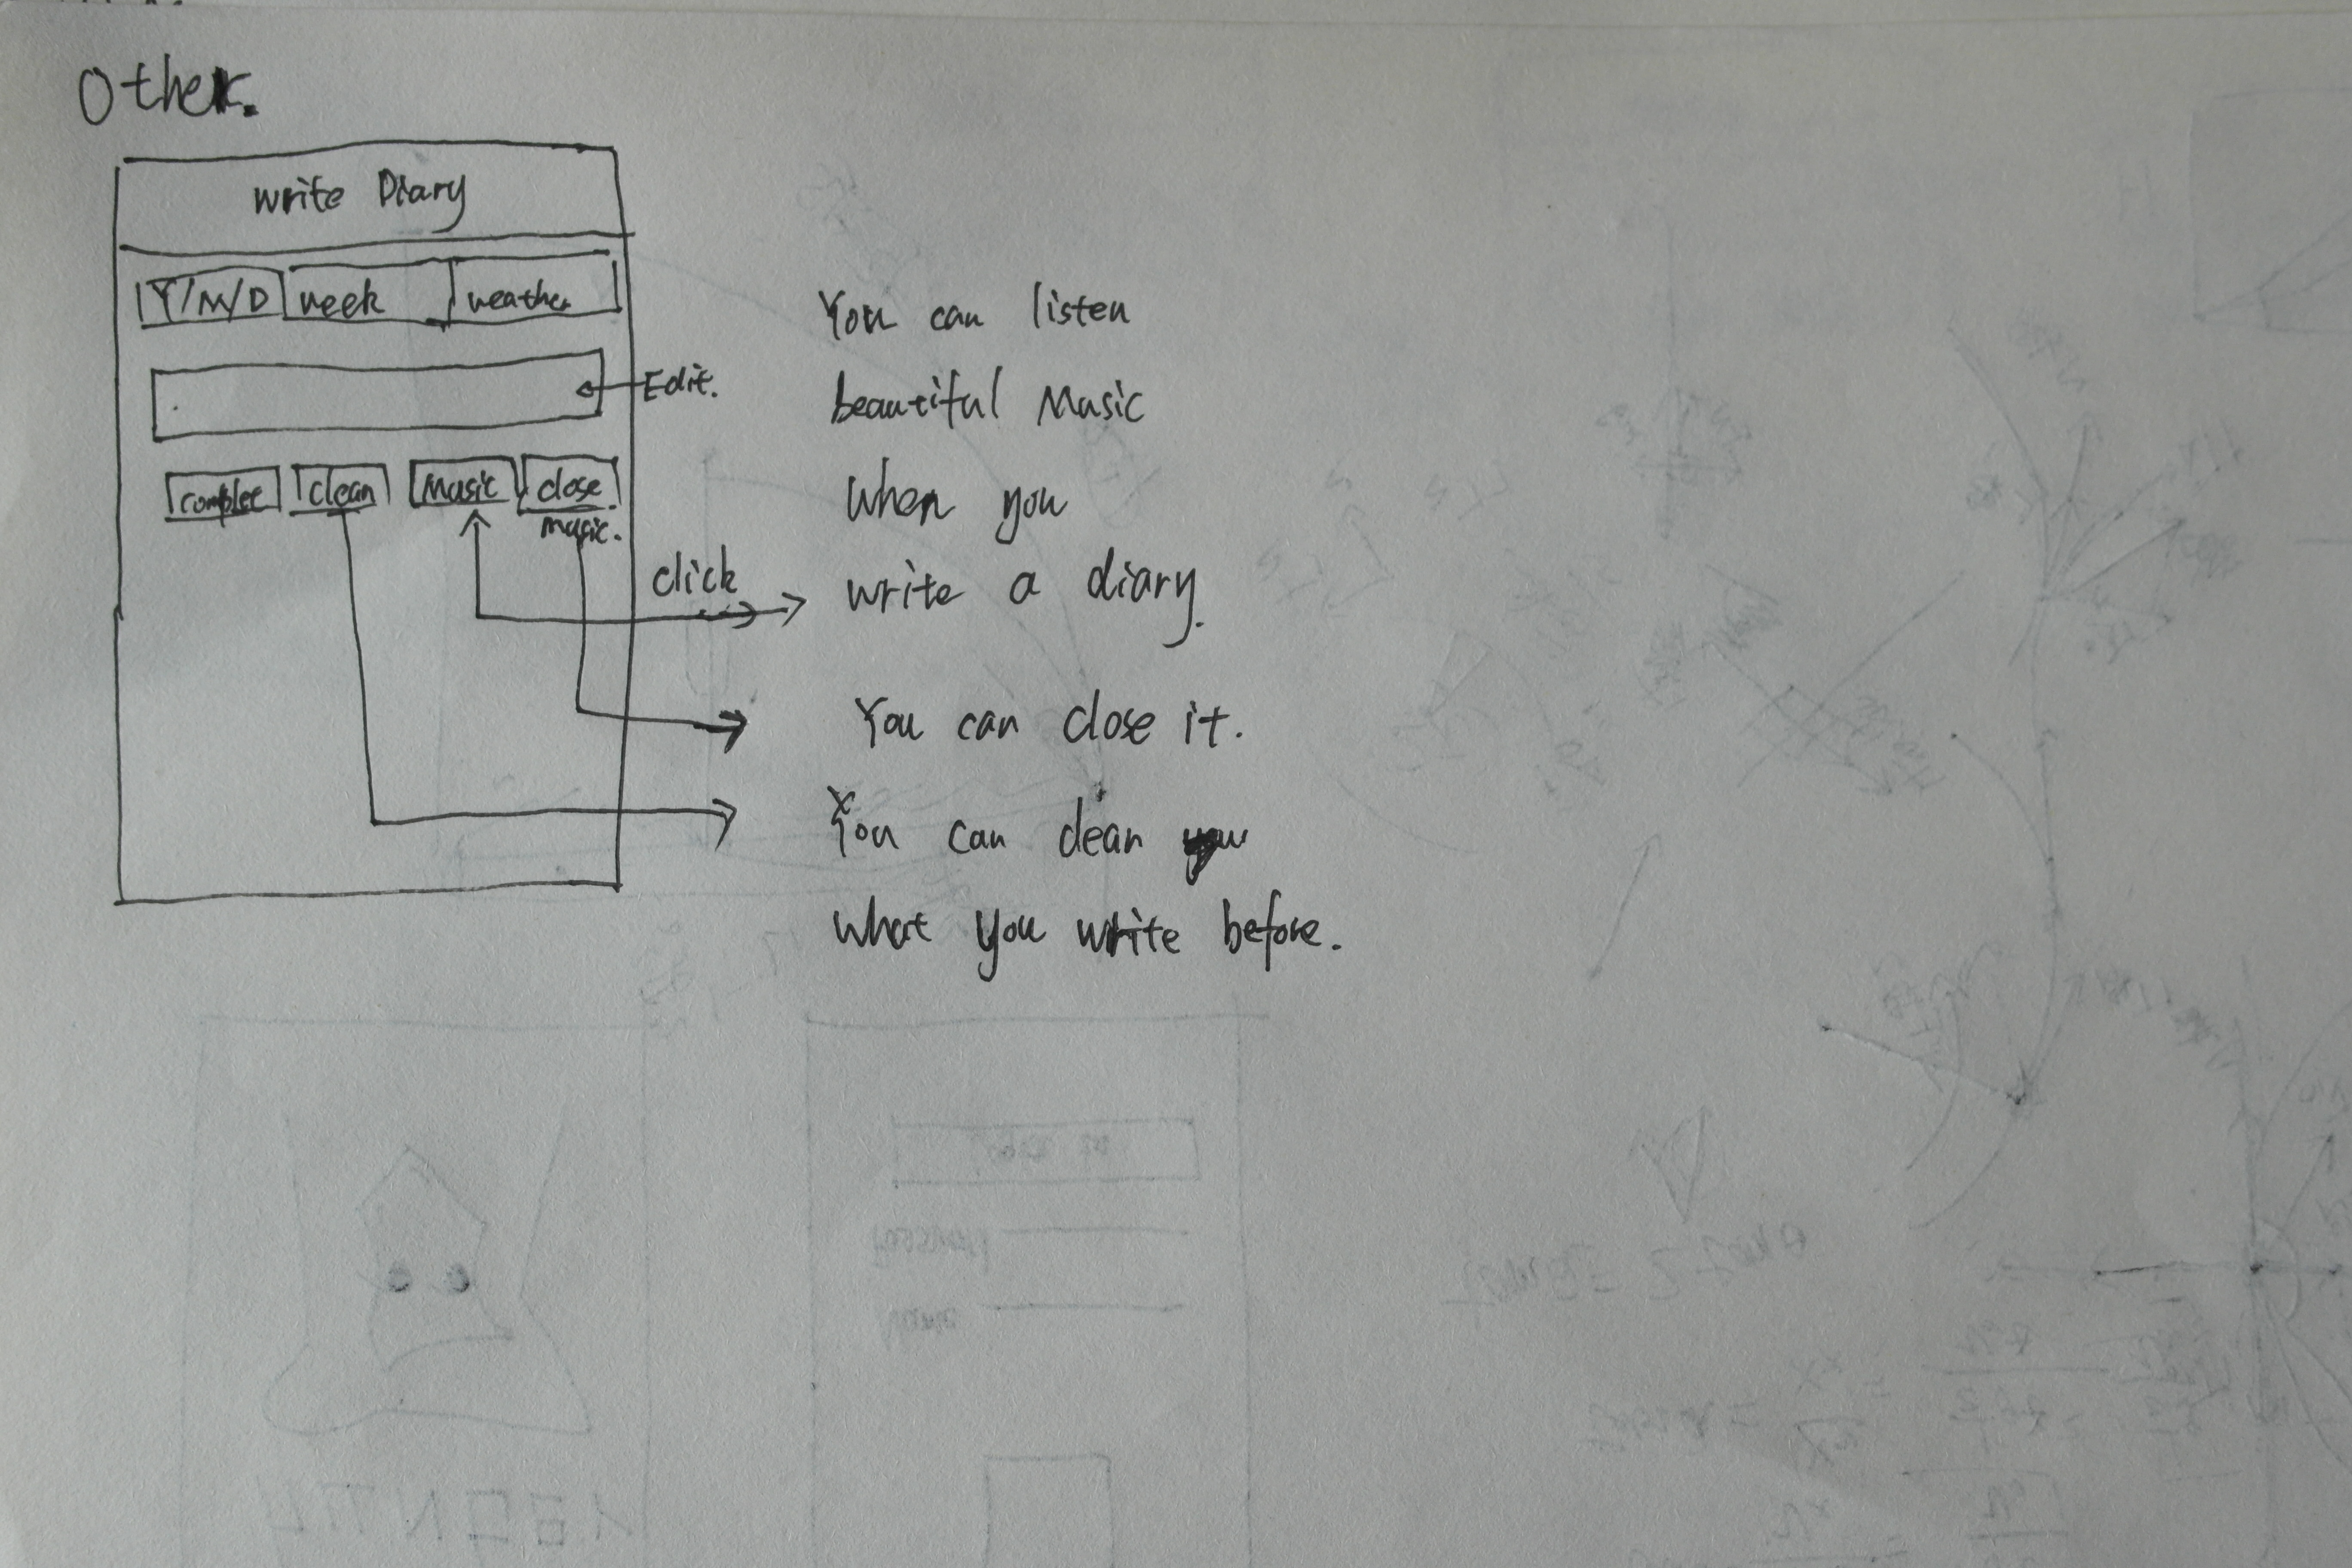 Other.
write Diary
Y/M/D week weather
Edit.
complet clean Music close
music.
click
You can listen
beautiful Music
When you
write a diary.
You can close it.
You can clean
what you write before.